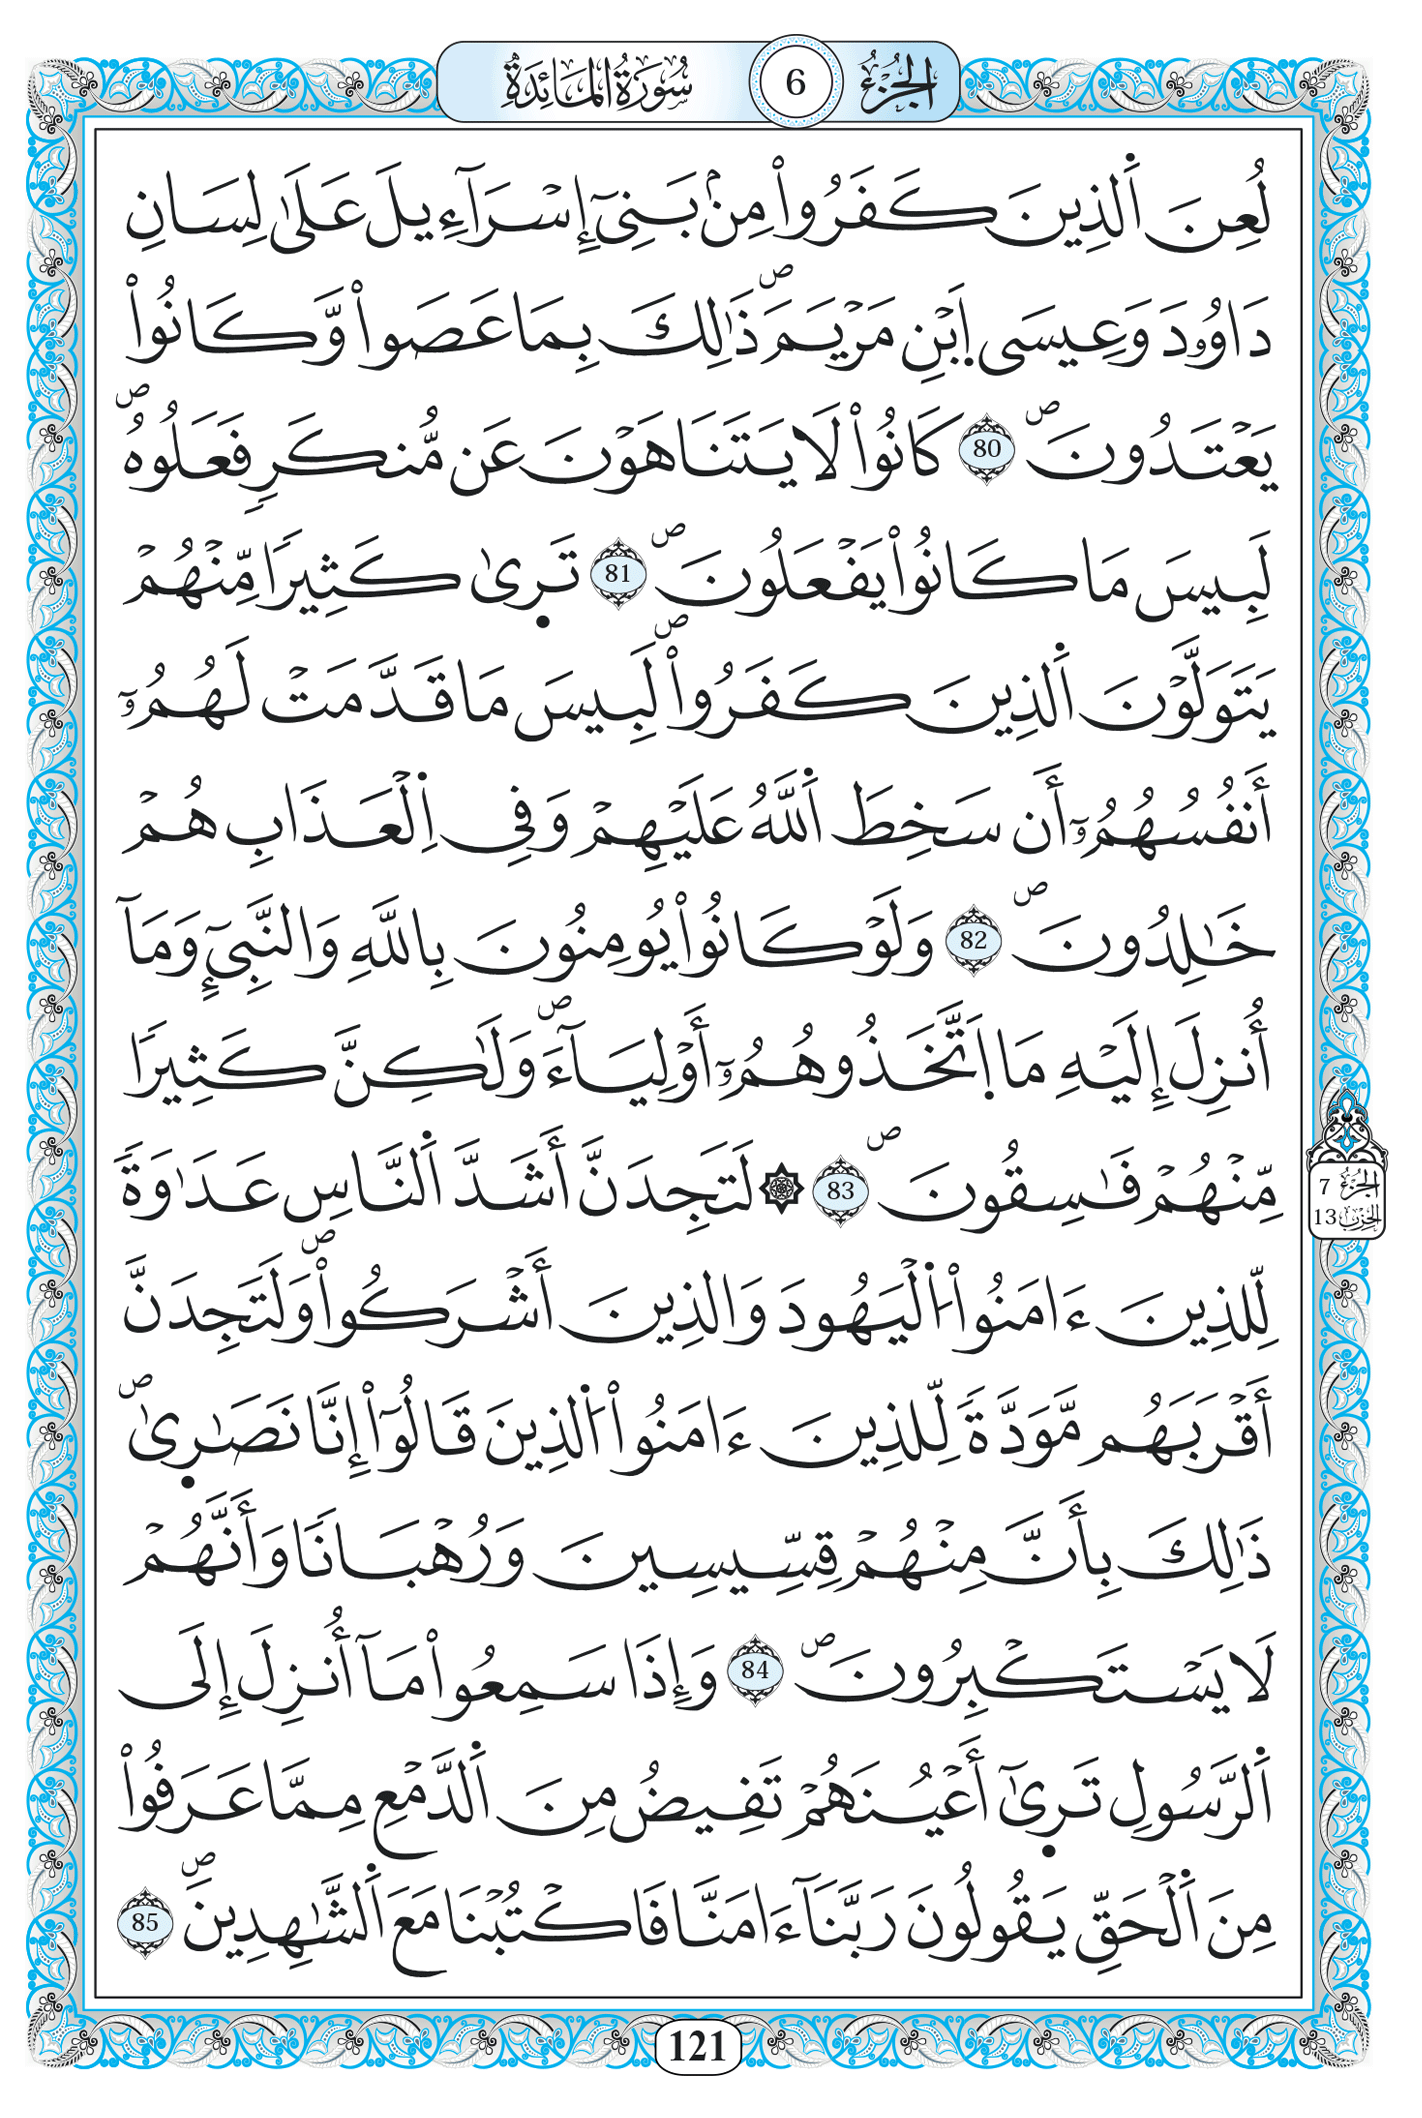 سُورَةُ المَائِدَةِ 6 الجُزْءُ
لُعِنَ اَ۬لذِينَ كَفَرُواْ مِنۢ بَنِےٓ إِسْرَآءِيلَ عَلَيٰ لِسَانِ
دَاوُۥدَ وَعِيسَي اَ۪بْنِ مَرْيَمَۖ ذَٰلِكَ بِمَا عَصَواْ وَّكَانُواْ
يَعْتَدُونَۖ 80 كَانُواْ لَا يَتَنَاهَوْنَ عَن مُّنكَرٖ فَعَلُوهُۖ
لَبِيسَ مَا كَانُواْ يَفْعَلُونَۖ 81 تَر۪يٰ كَثِيراٗ مِّنْهُمْ
يَتَوَلَّوْنَ اَ۬لذِينَ كَفَرُواْۖ لَبِيسَ مَا قَدَّمَتْ لَهُمُۥٓ
أَنفُسُهُمُۥٓ أَن سَخِطَ اَ۬للَّهُ عَلَيْهِمْ وَفِے اِ۬لْعَذَابِ هُمْ
خَٰلِدُونَۖ 82 وَلَوْ كَانُواْ يُومِنُونَ بِاللَّهِ وَالنَّبِےٓءِ وَمَآ
أُنزِلَ إِلَيْهِ مَا اَ۪تَّخَذُوهُمُۥٓ أَوْلِيَآءَۖ وَلَٰكِنَّ كَثِيراٗ
مِّنْهُمْ فَٰسِقُونَۖ 83 ۞ لَتَجِدَنَّ أَشَدَّ اَ۬لنَّاسِ عَدَٰوَةٗ
لِّلذِينَ ءَامَنُواْ اُ۬لْيَهُودَ وَالذِينَ أَشْرَكُواْۖ وَلَتَجِدَنَّ
أَقْرَبَهُم مَّوَدَّةٗ لِّلذِينَ ءَامَنُواْ اُ۬لذِينَ قَالُوٓاْ إِنَّا نَصَٰر۪يٰۖ
ذَٰلِكَ بِأَنَّ مِنْهُمْ قِسِّيسِينَ وَرُهْبَاناٗ وَأَنَّهُمْ
لَا يَسْتَكْبِرُونَۖ 84 وَإِذَا سَمِعُواْ مَآ أُنزِلَ إِلَي
اَ۬لرَّسُولِ تَر۪يٰٓ أَعْيُنَهُمْ تَفِيضُ مِنَ اَ۬لدَّمْعِ مِمَّا عَرَفُواْ
مِنَ اَ۬لْحَقِّ يَقُولُونَ رَبَّنَآ ءَامَنَّا فَاكْتُبْنَا مَعَ اَ۬لشَّٰهِدِينَۖ 85
الجُزْءُ 7
الحِزْبُ 13
121